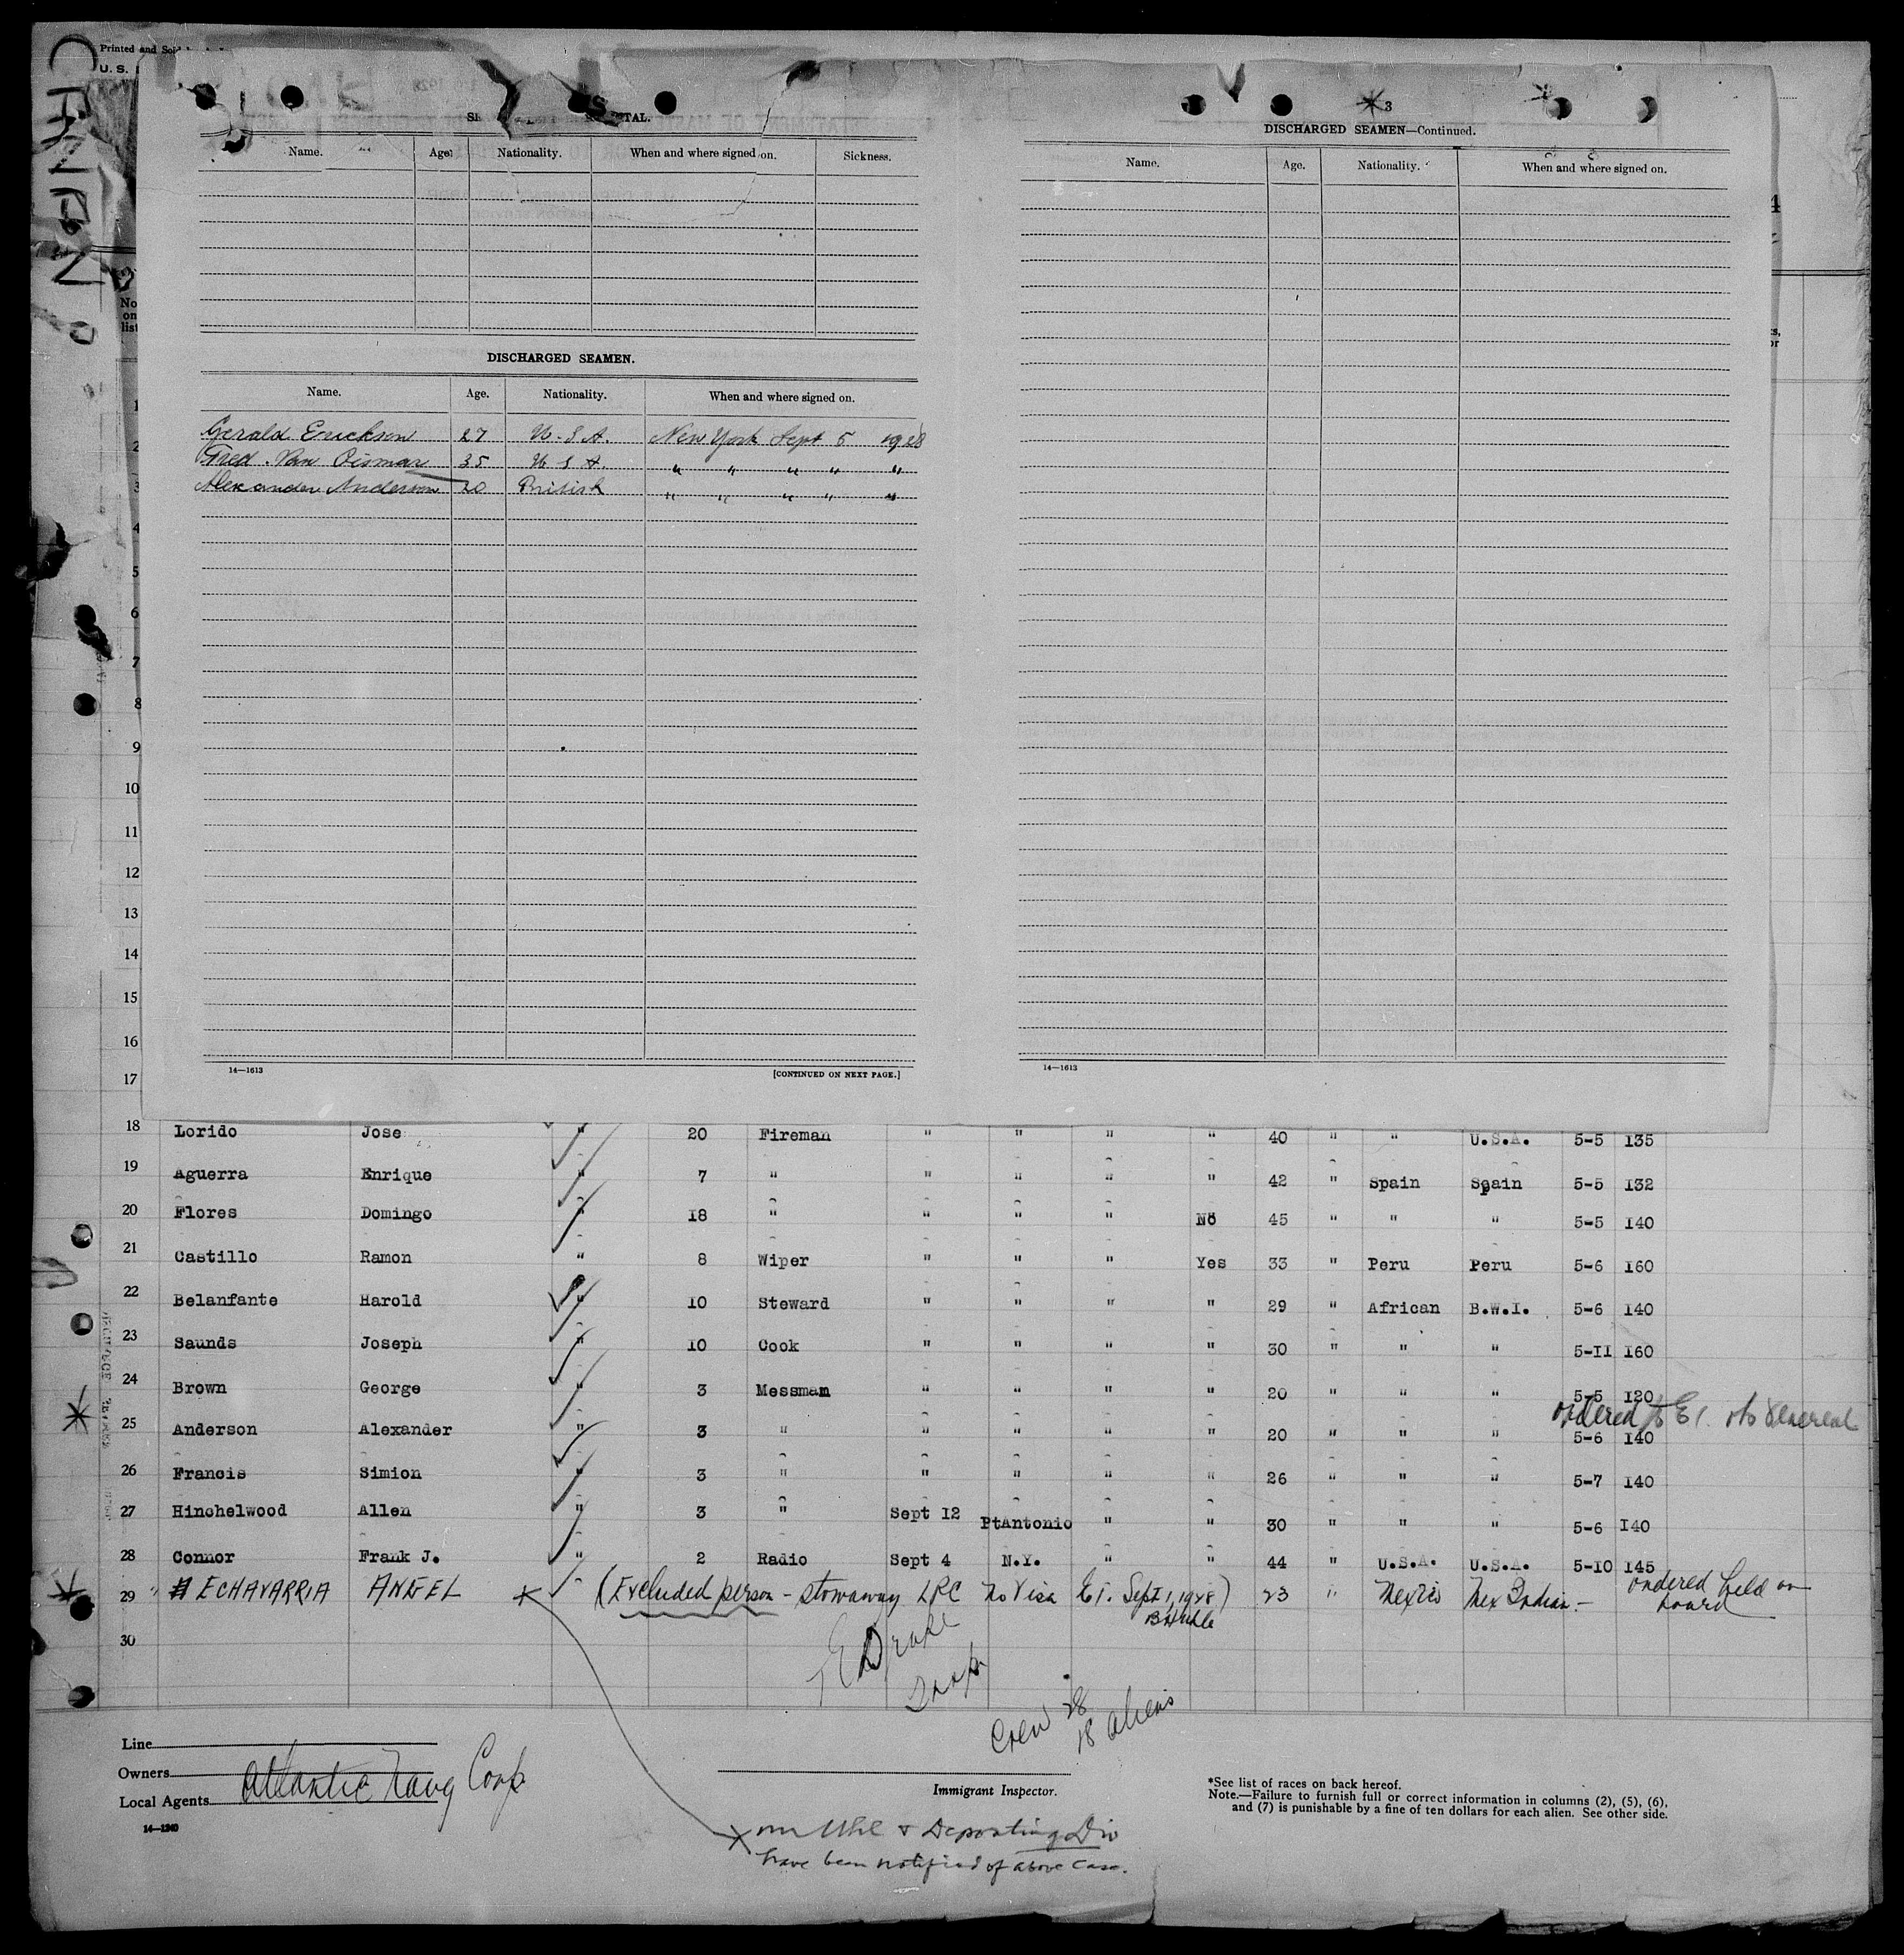 Printed and Sold
U. S.
TAL.
Name. Age. Nationality. When and where signed on. Sickness.
DISCHARGED SEAMEN.
Name. Age. Nationality. When and where signed on.
Gerald Erickson 27 U.S.A. New York Sept 5 1928
Fred. Van Pismar 35 U S A. " " " " "
Alexander Anderson 20 British " " " " "
14—1613 [CONTINUED ON NEXT PAGE.]
3
DISCHARGED SEAMEN—Continued.
Name. Age. Nationality. When and where signed on.
14—1613
No
on
list
1
2
3
4
5
6
7
8
9
10
11
12
13
14
15
16
17
18 Lorido Jose " 20 Fireman " " " " 40 " " U.S.A. 5-5 135
19 Aguerra Enrique " 7 " " " " " 42 " Spain Spain 5-5 132
20 Flores Domingo " 18 " " " " No 45 " " " 5-5 140
21 Castillo Ramon " 8 Wiper " " " Yes 33 " Peru Peru 5-6 160
22 Belanfante Harold " 10 Steward " " " " 29 " African B.W.I. 5-6 140
23 Saunds Joseph " 10 Cook " " " " 30 " " " 5-11 160
24 Brown George " 3 Messman " " " " 20 " " " 5-5 120
ordered to E.I.
25 Anderson Alexander " 3 " " " " " 20 " " " 5-6 140
26 Francis Simion " 3 " " " " " 26 " " " 5-7 140
27 Hinchelwood Allen " 3 " Sept 12 PtAntonio " " 30 " " " 5-6 140
28 Connor Frank J. " 2 Radio Sept 4 N.Y. " " 44 " U.S.A. U.S.A. 5-10 145
29 ECHAVARRIA ANGEL (Excluded person - stowaway LPC No Visa E.I. Sept 1, 1928) 23 " Mexico Mex Indian - ordered held on board
30
E Drake
Insp
Crew 28
18 aliens
Line
Owners
Local Agents Atlantic Navg Corp
14—1240
Immigrant Inspector.
*See list of races on back hereof.
Note.—Failure to furnish full or correct information in columns (2), (5), (6),
and (7) is punishable by a fine of ten dollars for each alien. See other side.
Mr Uhl & Deporting Div
have been notified of above case.